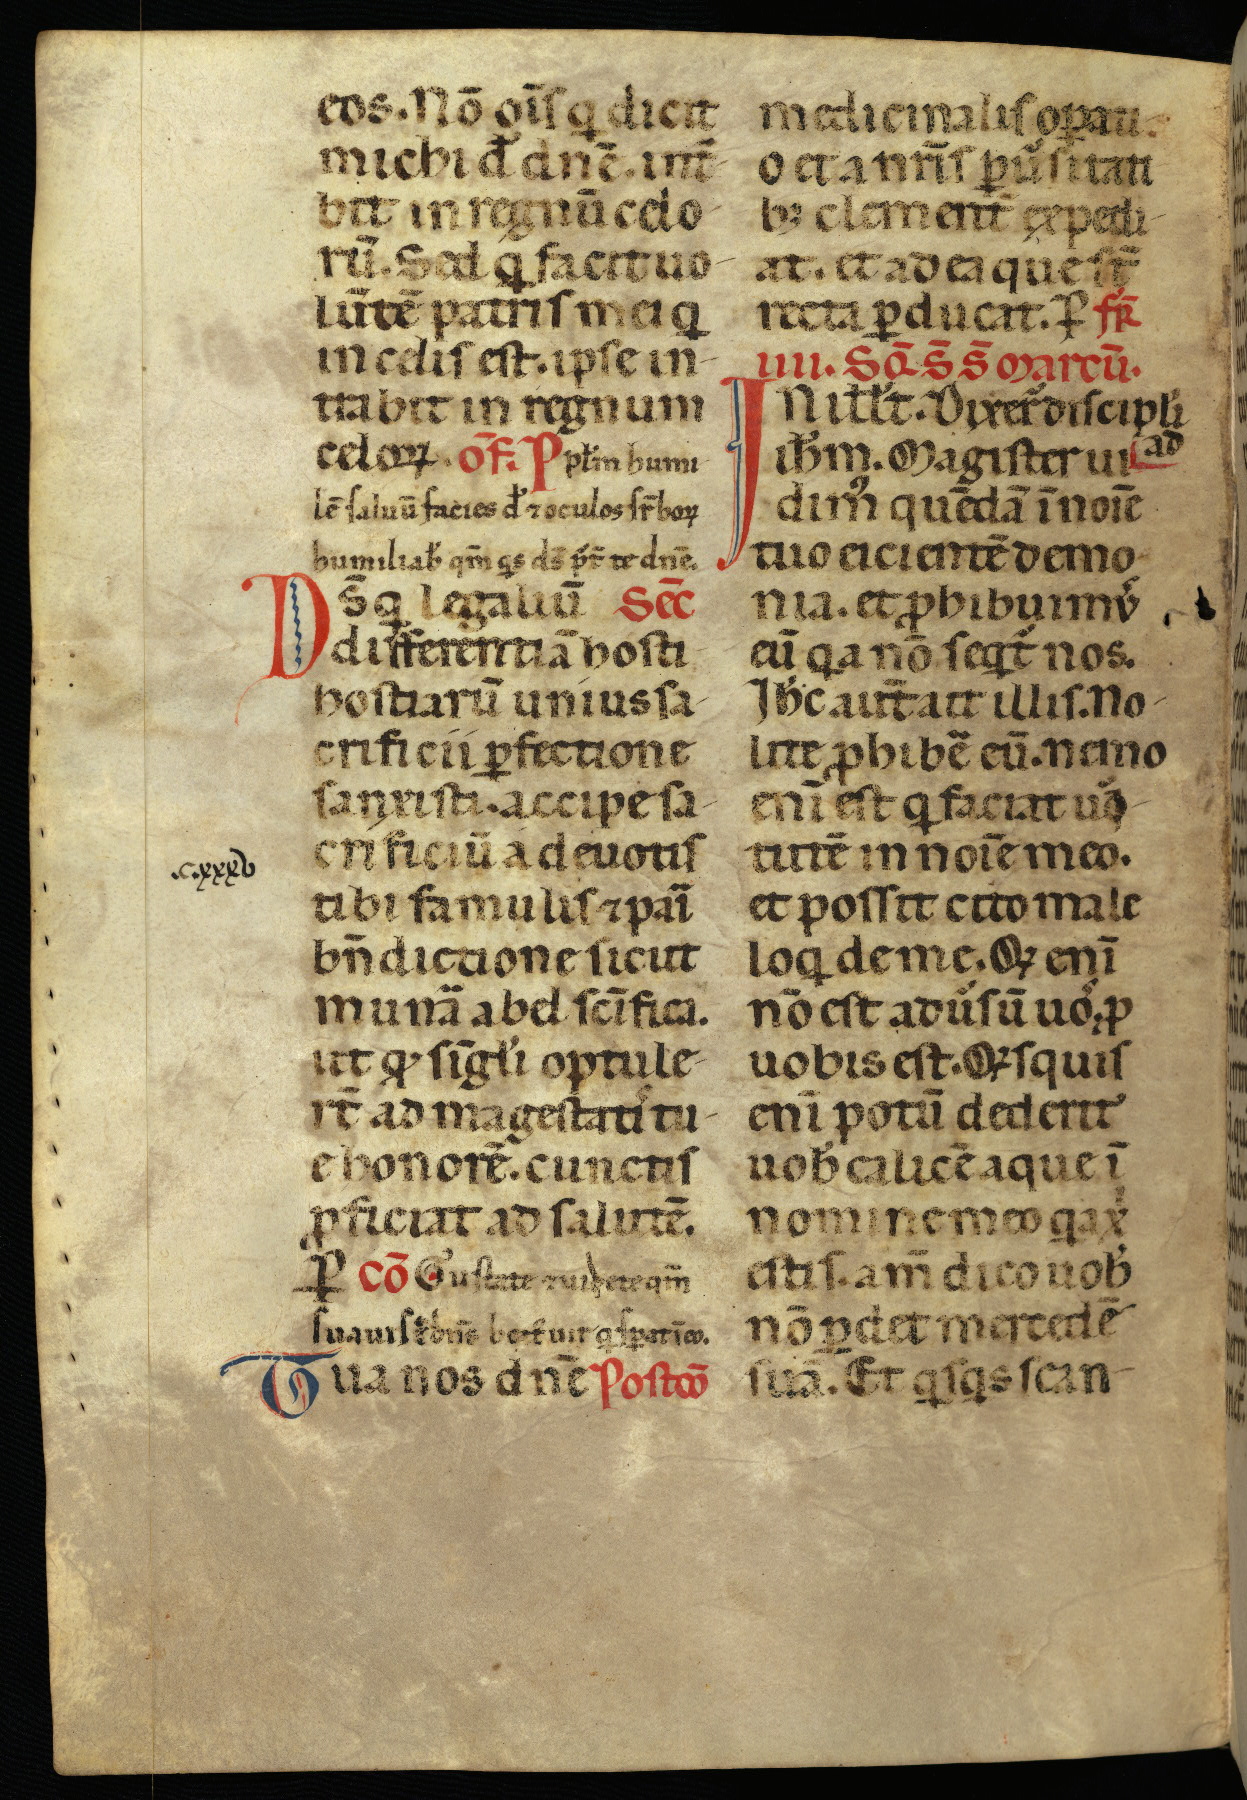 eos. Nō oīs q dicit
michi d̄ dn̄e. int̄
bit in regnū celo
rū. Sed q facit uo-
lūtē patris mei q
in celis est. ipse in-
trabit in regnum
celoꝝ. of̄. Ppl̄m humi
lē saluū facies d̄ ⁊ oculos sr̄boꝝ
humiliab̄ qm̄ q̄s ds̄ p̄t̄ te dn̄e.
Ds̄ q legaliū Sec̄
differentiā hosti
hostiarū unius sa-
crificii ꝑfectione
sanxisti. accipe sa-
crificiū a deuotis
.cxxxv
tibi famulis ⁊ pai
bn̄dictione sicut
munā abel scīfica.
ut qͥ sīgl̓i optule-
rt̄ ad magestatͥ tu-
e honorē. cunctis
ꝓficiat ad salutē.
P̱ Cō Gustate ⁊ uidete qm̄
suauis ē dn̄s bt̄s uir q sperat ī eo.
Tua nos dn̄e Postcō
medicinalis opati-
o et a nr̄īs ꝑu̓sitati
bꝫ clement̄ expedi-
at. et ad ea que st̄
recta ꝑducat. P̱ fr̄
iiii. Sq̄. S̄ S̄ Marcū.
IN ill̄ t. Dixer̄ discipl̓i
ad
ih̄m. Magister ui
dim̓ quēdā ī noīe
tuo eicientē demo-
nia. et ꝓhibuimꝰ
eū qa nō seqͥt̄ nos.
Ih̄c aut̄ ait illis. No-
lite ꝓhibē̓ eū. Nemo
enī est q faciat uͥ-
tutē in noīe meo.
et possit cito male
loq de me. Qꝫ enī
nō est adu̓sū uoͦ, ꝓ
uobis est. Qꝫsquis
enī potū dederit
uob̄ calicē aque ī
nomine meo qa xͥ
estis. am̄ dico uob̄
nō ꝑdet mercedē
suā. Et qsqs scan-